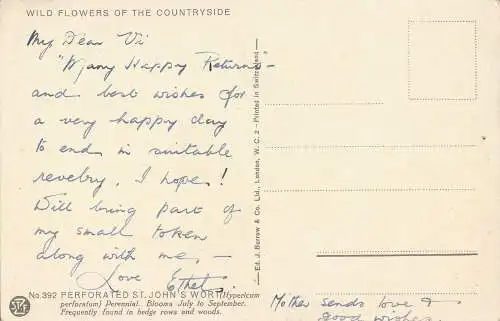 WILD FLOWERS OF THE COUNTRYSIDE
My Dear Vi
"Many Happy Returns-
and best wishes for
a very happy day
to end in suitable
revelry, I hope!
Will bring part of
my small token
along with me, —
Love Ethel.
No. 392 PERFORATED ST. JOHN'S WORT (Hypericum
perforatum) Perennial. Blooms July to September.
Frequently found in hedge rows and woods.
Ed. J. Burrow & Co. Ltd., London, W.C. 2 - Printed in Switzerland
Mother sends love &
good wishes.